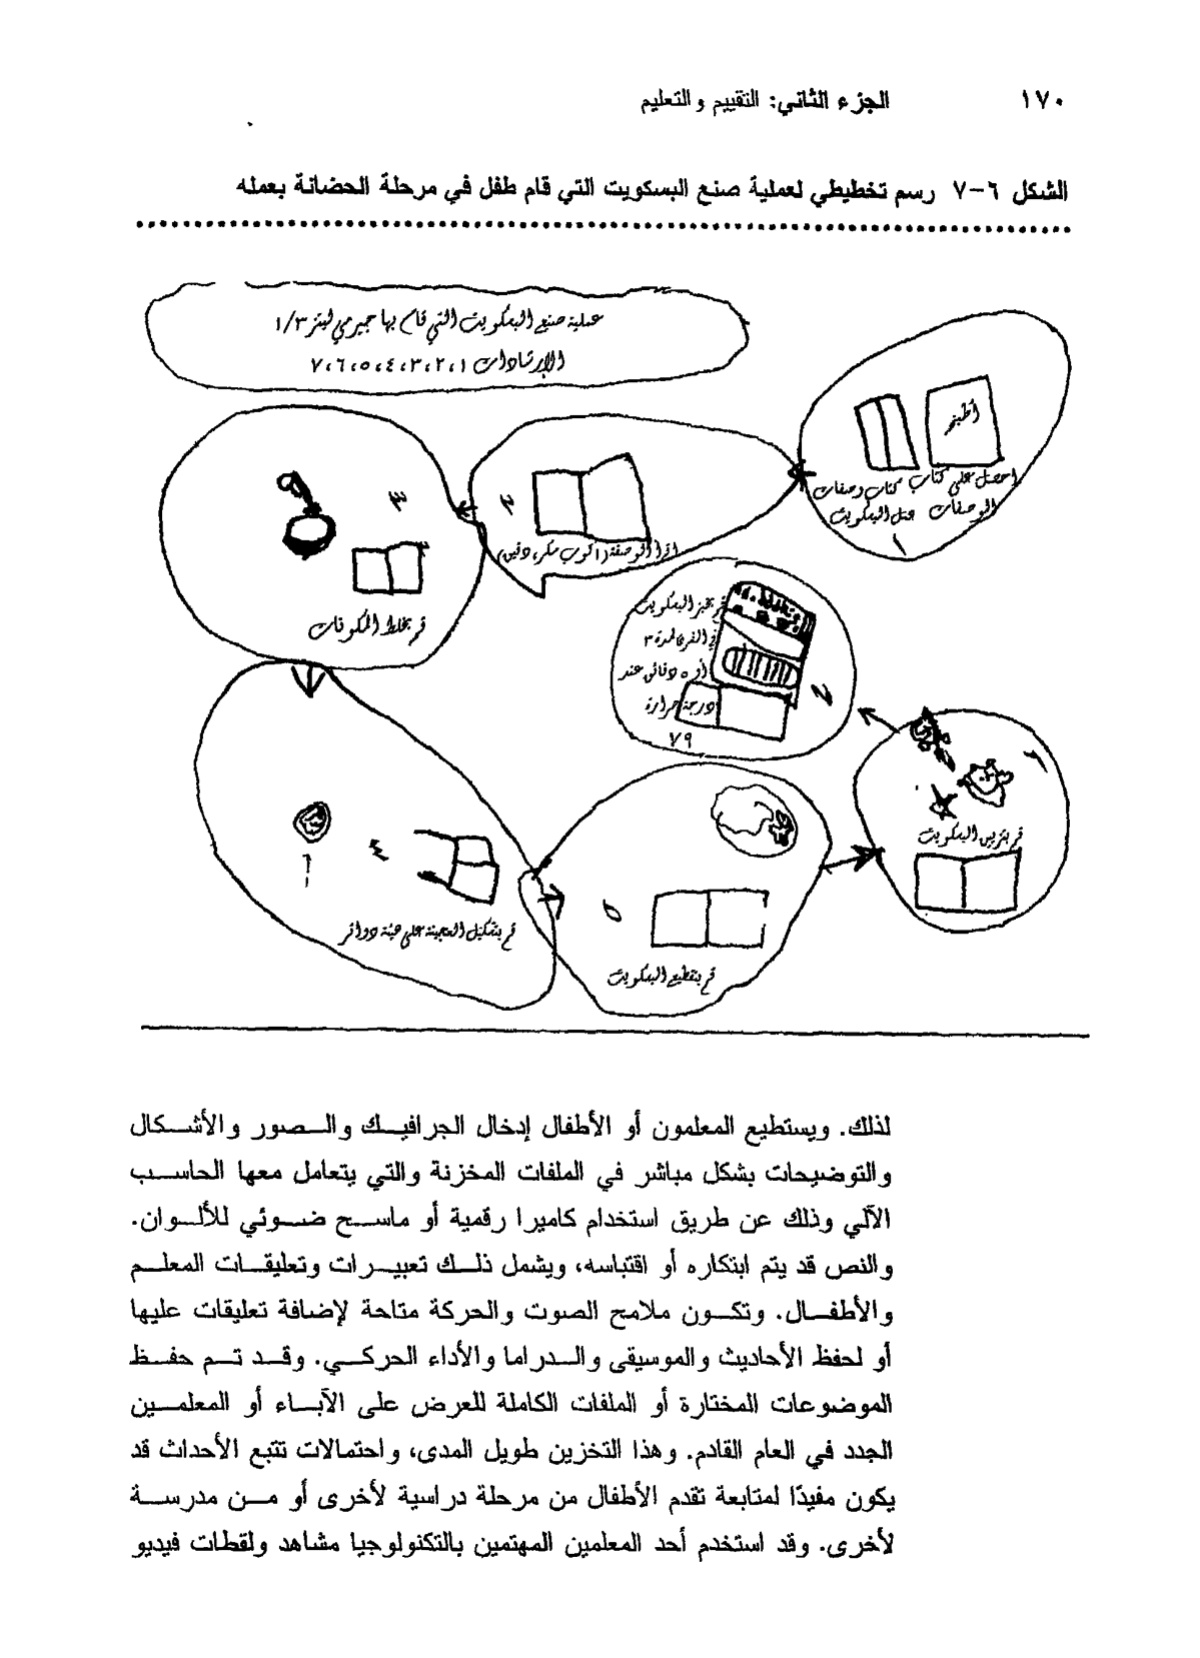 ١٧٠
الجزء الثاني: التقييم والتعليم
الشكل ٦-٧ رسم تخطيطي لعملية صنع البسكويت التي قام طفل في مرحلة الحضانة بعمله
عملية صنع البسكويت التي قام بها جيرمي ليتز ١/٣
الإرشادات ١، ٢، ٣، ٤، ٥، ٦، ٧
أطبخ
احصل على كتاب كتاب وصفات
الوصفات عمل البسكويت
١
٢
اقرأ الوصفة (١ كوب سكر، دقيق)
٣
قم بخلط المكونات
٤
قم بتشكيل العجينة على هيئة دوائر
٥
قم بتقطيع البسكويت
٦
قم بتزيين البسكويت
٧
قم بخبز البسكويت
في الفرن لمدة ٣
أو ٥ دقائق عند
درجة حرارة
٧٩
لذلك. ويستطيع المعلمون أو الأطفال إدخال الجرافيك والصور والأشكال
والتوضيحات بشكل مباشر في الملفات المخزنة والتي يتعامل معها الحاسب
الآلي وذلك عن طريق استخدام كاميرا رقمية أو ماسح ضوئي للألوان.
والنص قد يتم ابتكاره أو اقتباسه، ويشمل ذلك تعبيرات وتعليقات المعلم
والأطفال. وتكون ملامح الصوت والحركة متاحة لإضافة تعليقات عليها
أو لحفظ الأحاديث والموسيقى والدراما والأداء الحركي. وقد تم حفظ
الموضوعات المختارة أو الملفات الكاملة للعرض على الآباء أو المعلمين
الجدد في العام القادم. وهذا التخزين طويل المدى، واحتمالات تتبع الأحداث قد
يكون مفيدًا لمتابعة تقدم الأطفال من مرحلة دراسية لأخرى أو من مدرسة
لأخرى. وقد استخدم أحد المعلمين المهتمين بالتكنولوجيا مشاهد ولقطات فيديو